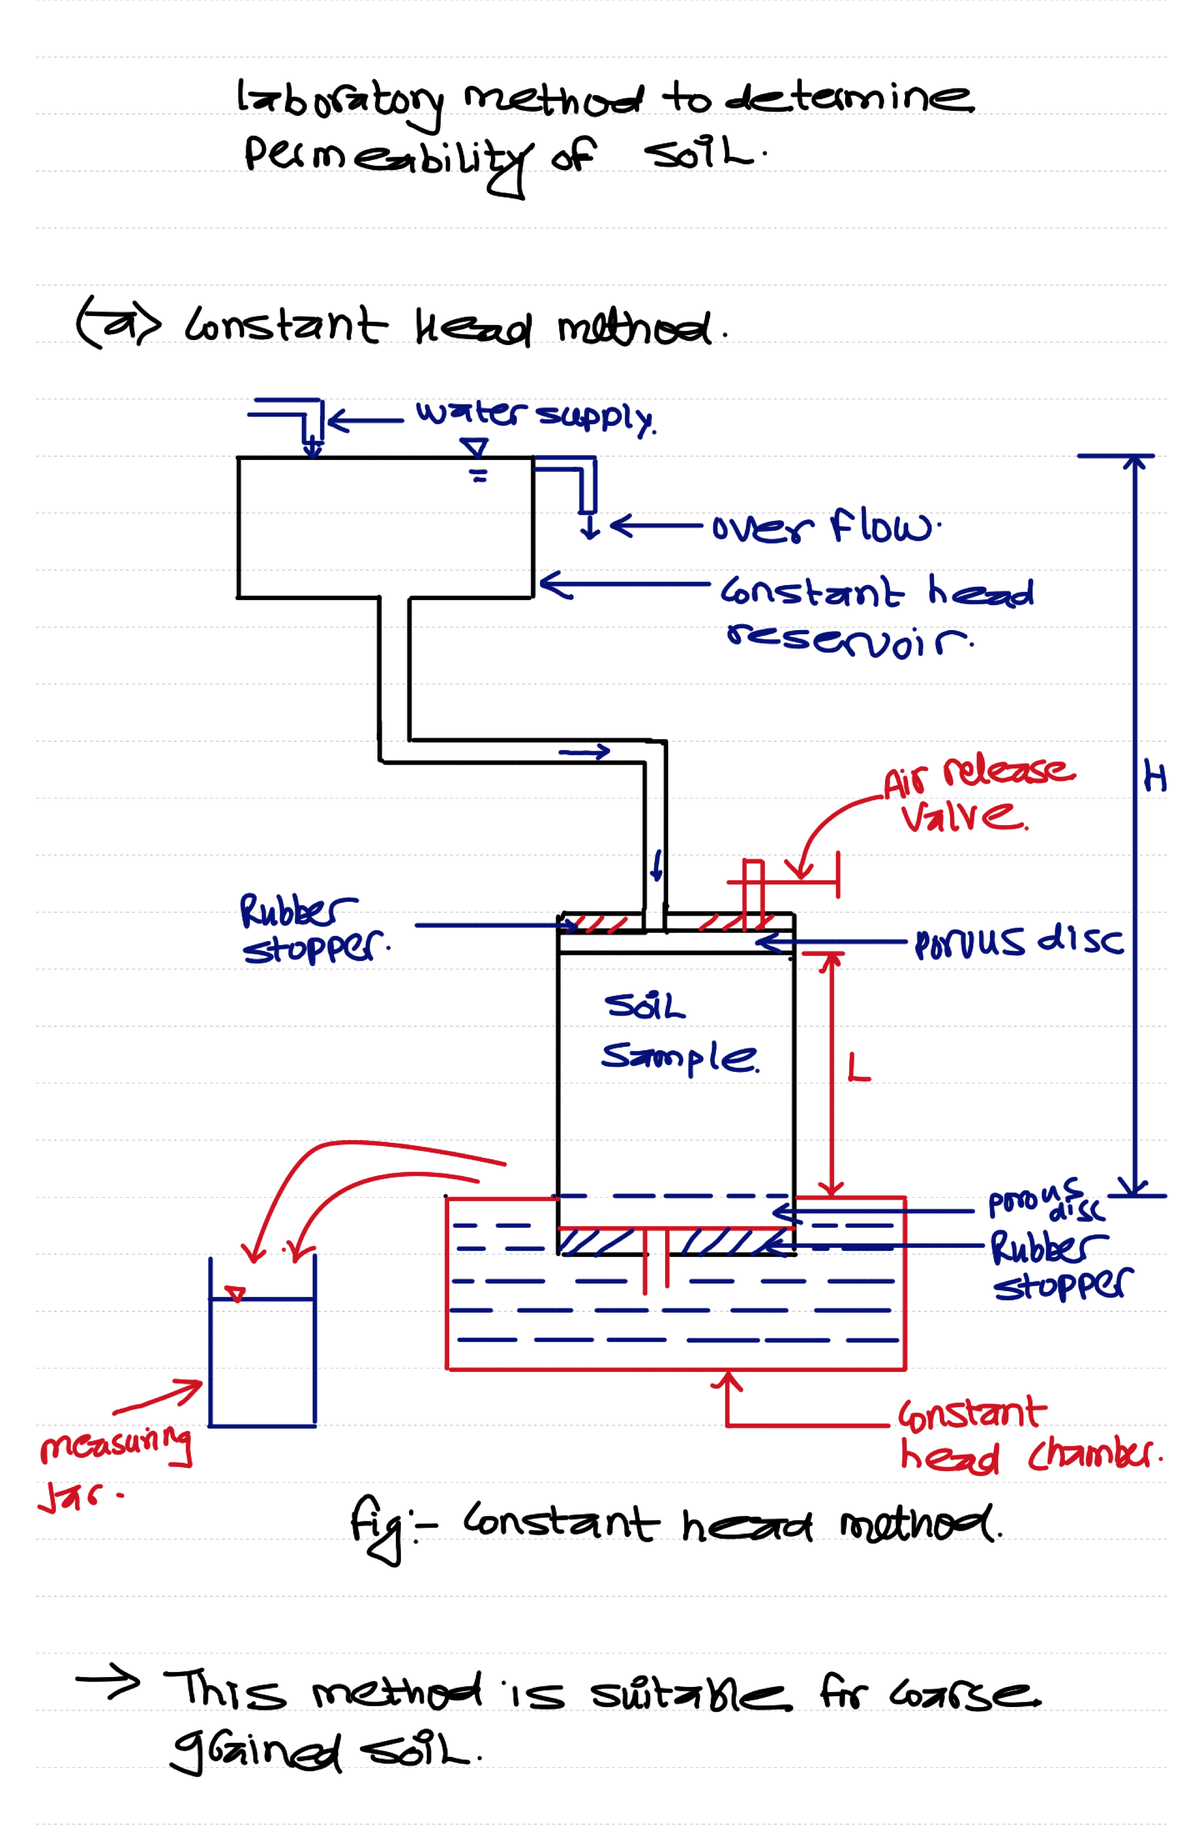 laboratory method to determine
permeability of soil.
(a) Constant Head method.
water supply.
over flow.
Constant head
reservoir.
H
Air release
valve.
Rubber
stopper.
porous disc
soil
sample.
L
porous
disc
Rubber
stopper
measuring
Jar.
Constant
head chamber.
fig:- Constant head method.
→ This method is suitable for coarse
grained soil.